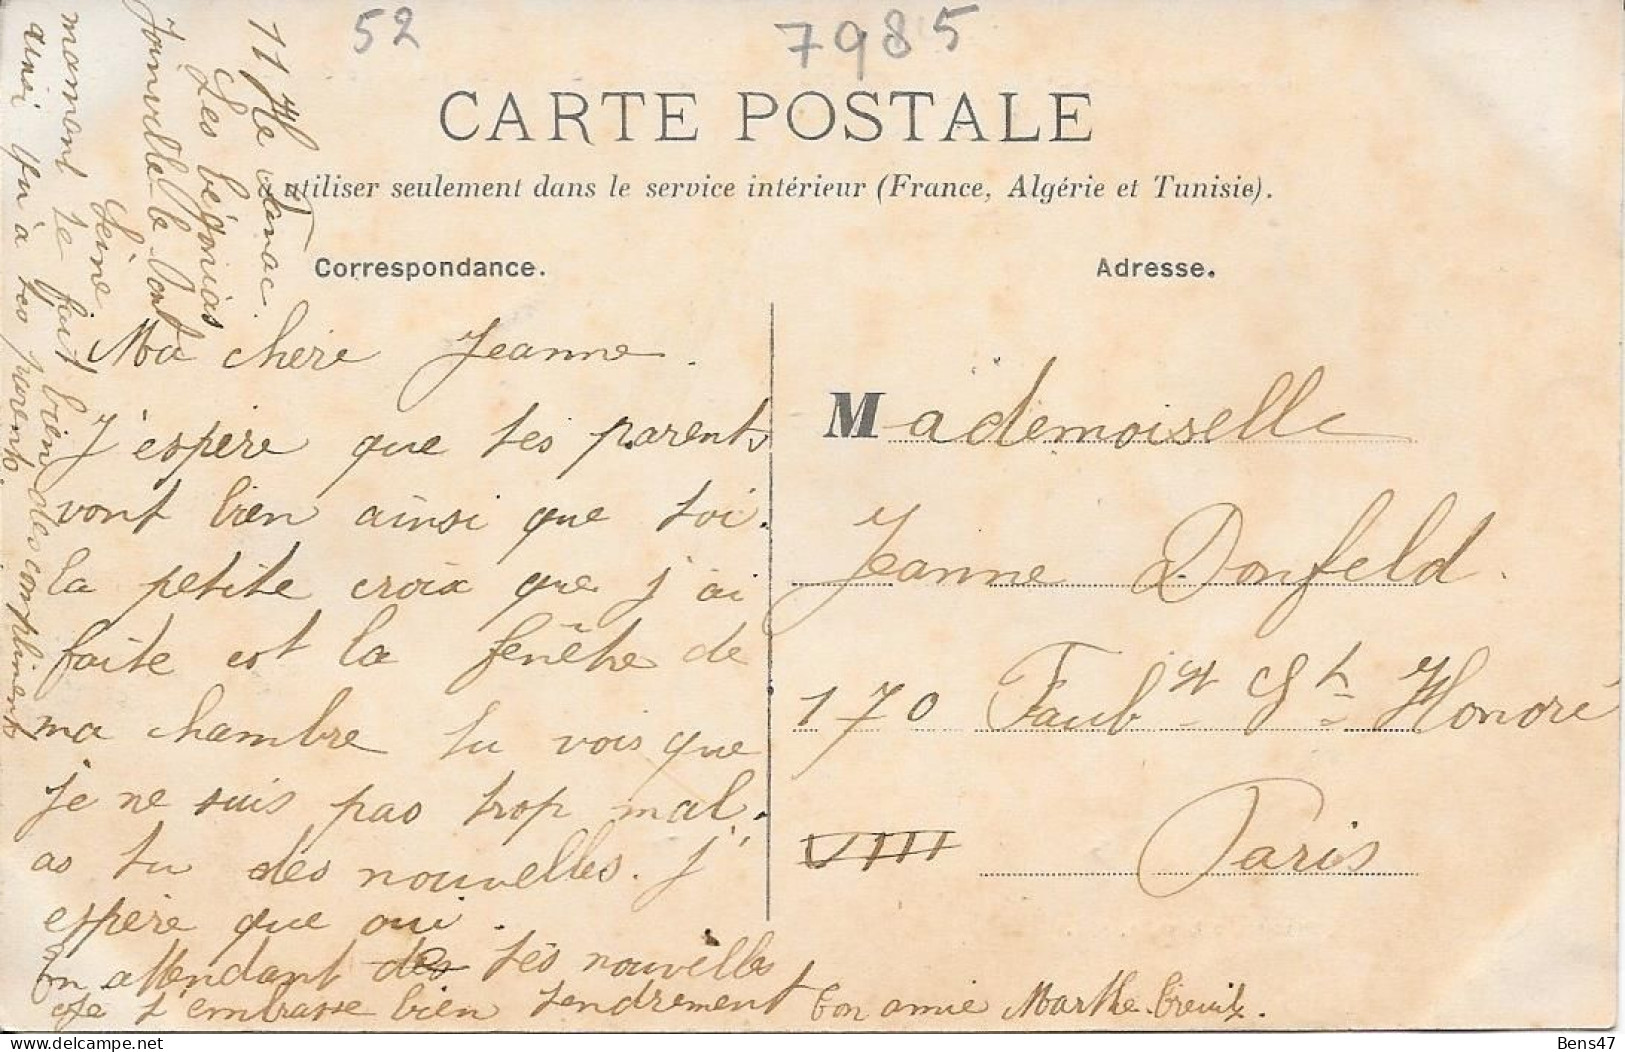 52
7985
CARTE POSTALE
utiliser seulement dans le service intérieur (France, Algérie et Tunisie).
Correspondance.
Adresse.
Ma chère Jeanne.
J'espère que tes parents
vont bien ainsi que toi.
la petite croix que j'ai
faite est la fenêtre de
ma chambre tu vois que
je ne suis pas trop mal.
as tu des nouvelles. j'
espère que oui.
En attendant des tes nouvelles
Je t'embrasse bien tendrement ton amie Marthe
11
Les bégonias
Joinville-le-Pont
Seine
maman te fait bien des compliments
ainsi qu'à tes parents.
Mademoiselle
Jeanne Donfeld.
170 Faubg St Honoré
VIII
Paris
Bens47